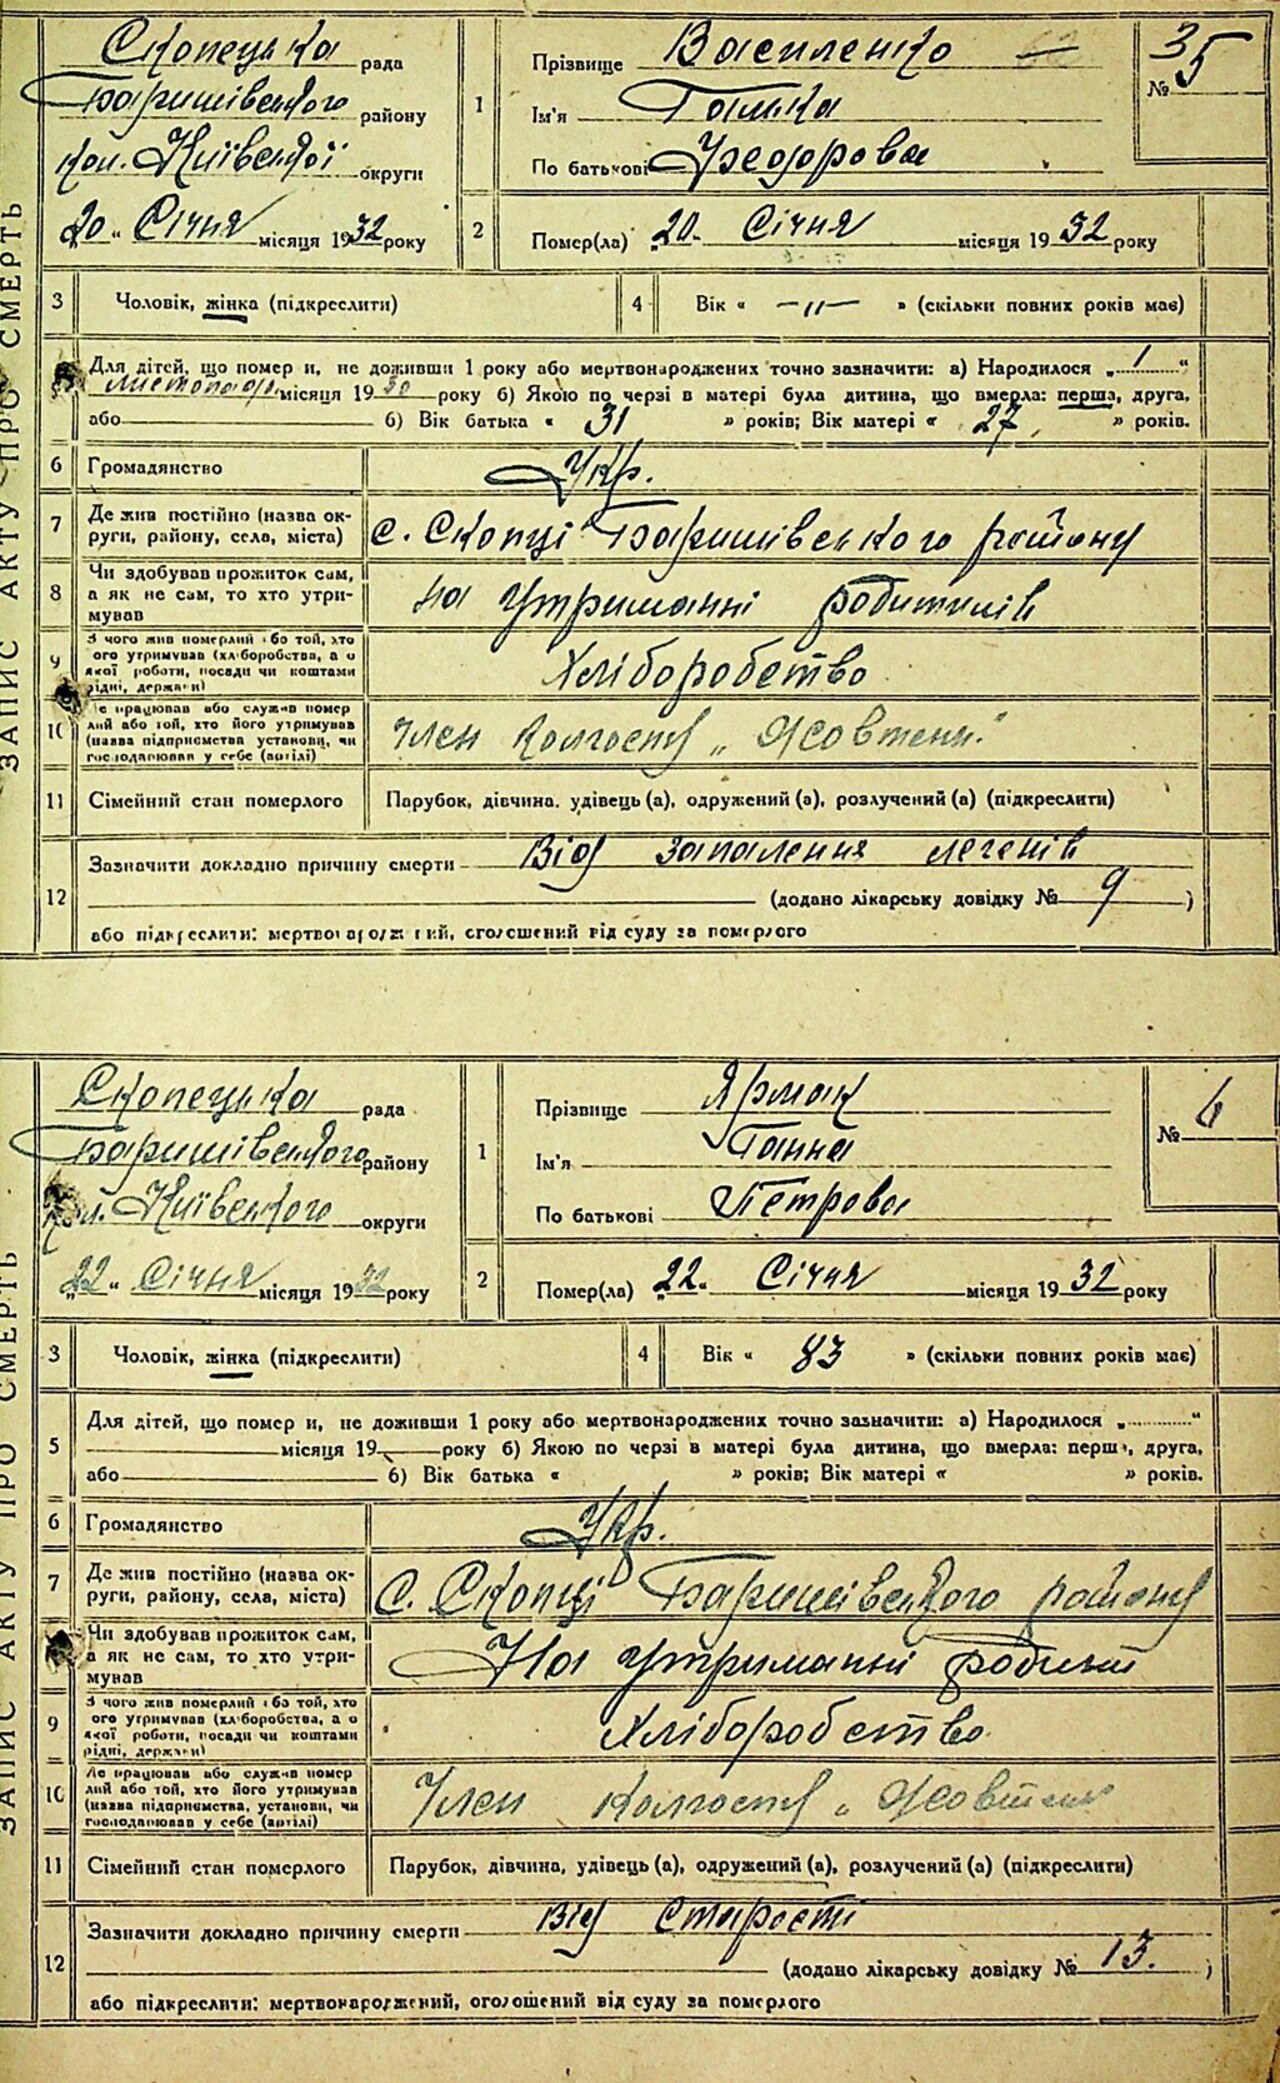 ЗАПИС АКТУ ПРО СМЕРТЬ
Скопецька рада
Баришівського району
кол. Київської округи
„20“ Січня місяця 1932 року
1 Прізвище Василенко
Ім'я Галька
По батькові Федорова
№ 35
2 Помер(ла) „20“ Січня місяця 1932 року
3 Чоловік, жінка (підкреслити)
4 Вік « —„— » (скільки повних років має)
5 Для дітей, що помер и, не доживши 1 року або мертвонароджених точно зазначити: а) Народилося „1“
листопада місяця 1930 року б) Якою по черзі в матері була дитина, що вмерла: перша, друга,
або 6) Вік батька « 31 » років; Вік матері « 27 » років.
6 Громадянство Укр.
7 Де жив постійно (назва округи, району, села, міста) с. Скопці Баришівського району
8 Чи здобував прожиток сам, а як не сам, то хто утримував на утриманні родителів
9 З чого жив померлий або той, хто ого утримував (хліборобства, а о якої роботи, посади чи коштами рідні, держави) Хліборобство
10 Де працював або служив помер лий або той, хто його утримував (назва підприємства установи, чи господарював у себе (артілі) Член колгоспу „Жовтень“
11 Сімейний стан померлого Парубок, дівчина, удівець (а), одружений (а), розлучений (а) (підкреслити)
12 Зазначити докладно причину смерти Від запалення легенів
(додано лікарську довідку № 9)
або підкреслити: мертвонароджений, оголошений від суду за померлого
ЗАПИС АКТУ ПРО СМЕРТЬ
Скопецька рада
Баришівського району
кол. Київського округи
„22“ Січня місяця 1932 року
1 Прізвище Ярмак
Ім'я Ганна
По батькові Петрова
№ 6
2 Помер(ла) „22“ Січня місяця 1932 року
3 Чоловік, жінка (підкреслити)
4 Вік « 83 » (скільки повних років має)
5 Для дітей, що помер и, не доживши 1 року або мертвонароджених точно зазначити: а) Народилося „ “
місяця 19 року б) Якою по черзі в матері була дитина, що вмерла: перша, друга,
або 6) Вік батька « » років; Вік матері « » років.
6 Громадянство Укр.
7 Де жив постійно (назва округи, району, села, міста) с. Скопці Баришівського району
8 Чи здобував прожиток сам, а як не сам, то хто утримував На утриманні родини
9 З чого жив померлий або той, хто ого утримував (хліборобства, а о якої роботи, посади чи коштами рідні, держави) Хліборобство
10 Де працював або служив помер лий або той, хто його утримував (назва підприємства, установи, чи господарював у себе (артілі) Член колгоспу „Жовтень
11 Сімейний стан померлого Парубок, дівчина, удівець (а), одружений (а), розлучений (а) (підкреслити)
12 Зазначити докладно причину смерти Від Старости
(додано лікарську довідку № 13.)
або підкреслити: мертвонароджений, оголошений від суду за померлого